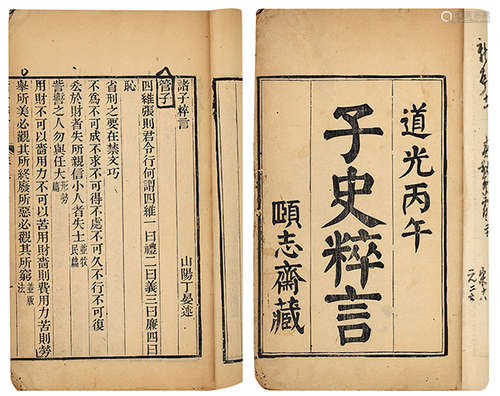 道光丙午
子史粹言
頤志齋藏
諸子粹言
山陽丁晏述
管子
四維張則君令行何謂四維一曰禮二曰義三曰廉四曰
恥
省刑之要在禁文巧
不為不可成不求不可得不處不可久不行不可復
吝於財者失所親信小人者失士並牧民篇
訾讆之人勿與任大形勢篇
用財不可以嗇用力不可以苦用財嗇則費用力苦則勞
舉所美必觀其所終廢所惡必觀其所窮並版法